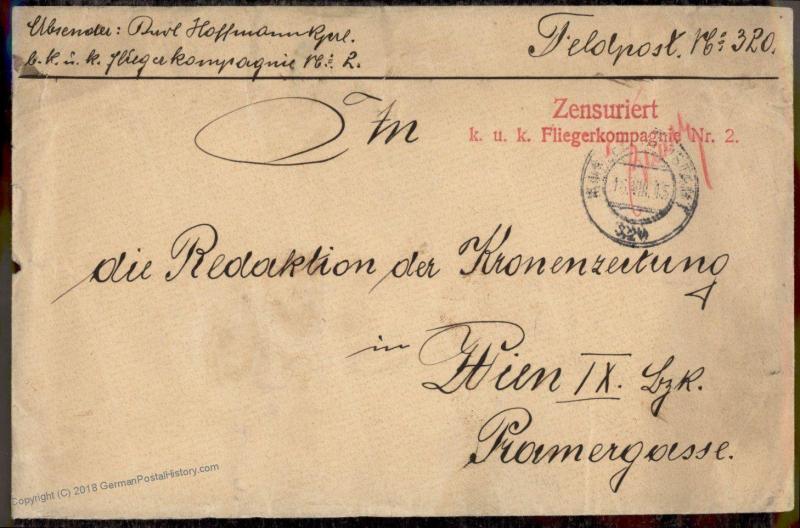 Absender: Karl Hoffmann Kprl.
b. k. u. k. Fliegerkompagnie No: 2.
Feldpost. No: 320.
Zensuriert
k. u. k. Fliegerkompagnie Nr. 2.
An
320
die Redaktion der Kronenzeitung
in
Wien IX. Bzk.
Pramergasse.
Copyright (C) 2018 GermanPostalHistory.com